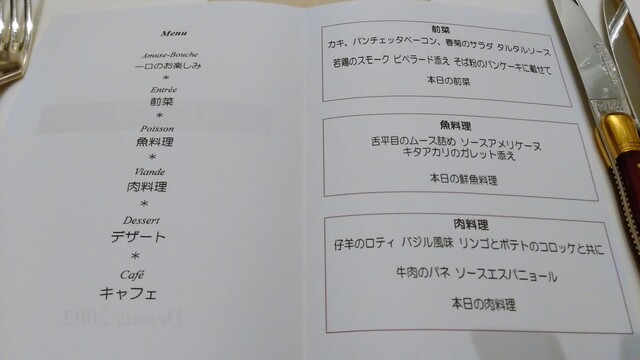 Menu
Amuse-Bouche
一口のお楽しみ
*
Entrée
前菜
*
Poisson
魚料理
*
Viande
肉料理
*
Dessert
デザート
*
Café
キャフェ
前菜
カキ、パンチェッタベーコン、春菊のサラダ タルタルソース
若鶏のスモーク ピペラード添え そば粉のパンケーキに載せて
本日の前菜
魚料理
舌平目のムース詰め ソースアメリケーヌ
キタアカリのガレット添え
本日の鮮魚料理
肉料理
仔羊のロティ バジル風味 リンゴとポテトのコロッケと共に
牛肉のパネ ソースエスパニョール
本日の肉料理
Depuis 2002